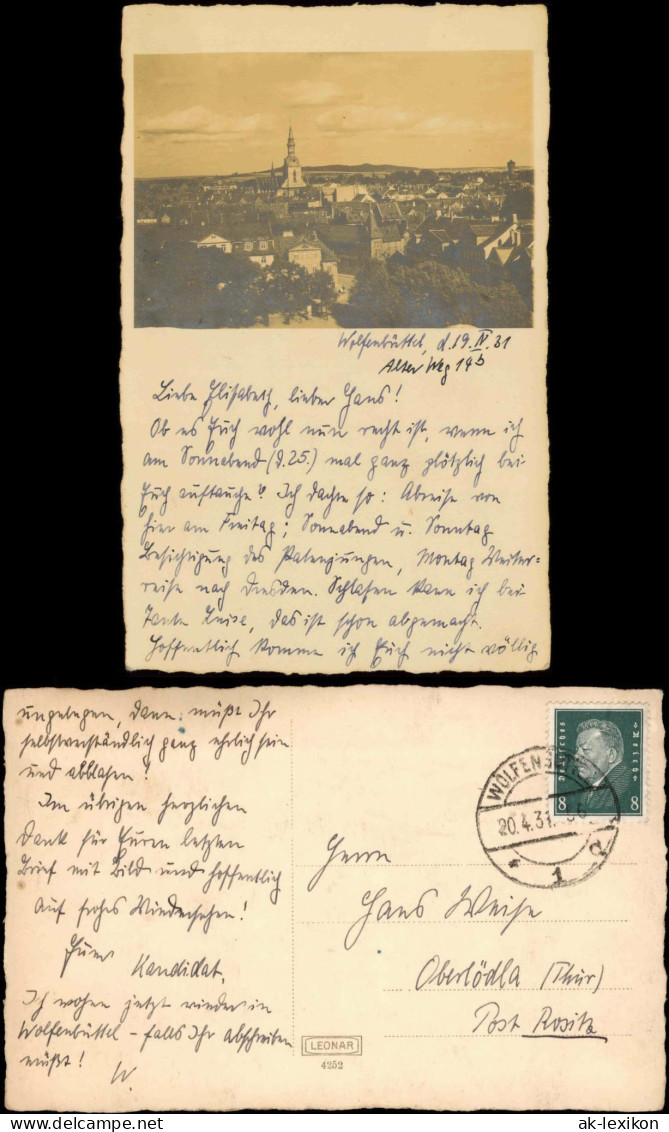 Wolfenbüttel, d. 19. IV. 31
Alter Weg 14b
Liebe Elisabeth, lieber Hans!
Ob es Euch wohl nun recht ist, wenn ich
am Sonnabend (d. 25.) mal ganz plötzlich bei
Euch auftauche? Ich dachte so: Abreise von
hier am Freitag; Sonnabend u. Sonntag
Besichtigung des Patenjungen, Montag Weiter=
reise nach Dresden. Schlafen kann ich bei
Tante Luise, das ist schon abgemacht.
Hoffentlich komme ich Euch nicht völlig
ungelegen, dann müßt Ihr
selbstverständlich ganz ehrlich sein
und abblasen!
Im übrigen herzlichen
Dank für Euren letzten
Brief mit Bild und hoffentlich
auf frohes Wiedersehen!
Euer
Kandidat.
Ich wohne jetzt wieder in
Wolfenbüttel – falls Ihr abschreiben
müßt!
W.
DEUTSCHES REICH
8 8
WOLFENBÜ
20.4.31.
* 1 d
Herrn
Hans Weise
Oberlödla (Thür)
Post Rositz
LEONAR
4252
ak-lexikon